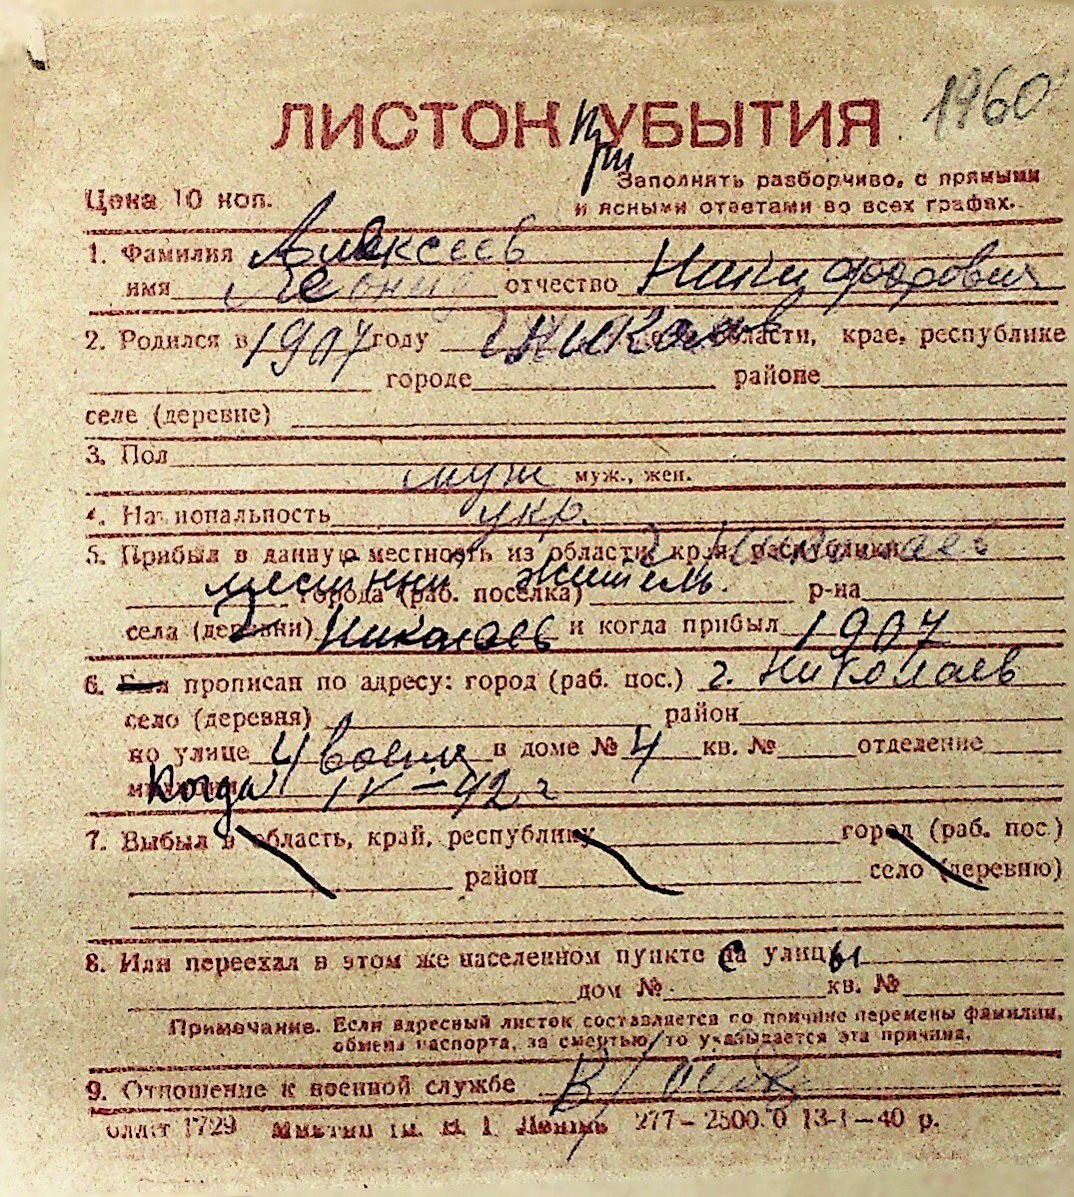 1960
ЛИСТОК при УБЫТИЯ
Цена 10 коп. Заполнять разборчиво, с прямыми
и ясными ответами во всех графах.
1. Фамилия Алексеев
имя Леонид отчество Никифорович
2. Родился в 1907 году г. Николаев области, крае, республике
городе районе
селе (деревне)
3. Пол муж муж., жен.
4. Национальность укр.
5. Прибыл в данную местность из области, края, республики г. Николаев
местный житель. города (раб. поселка) р-на
села (деревни) г. Николаев и когда прибыл 1907
6. Был прописан по адресу: город (раб. пос.) г. Николаев
село (деревня) район
по улице 4 воен в доме № 4 кв. № отделение
милиции Когда IV-42 г
7. Выбыл в область, край, республику город (раб. пос.)
район село (деревню)
8. Или переехал в этом же населенном пункте с улицы
дом № кв. №
Примечание. Если адресный листок составляется по причине перемены фамилии,
обмена паспорта, за смертью, то указывается эта причина.
9. Отношение к военной службе В/
1729 277–2500.0 13-1–40 р.